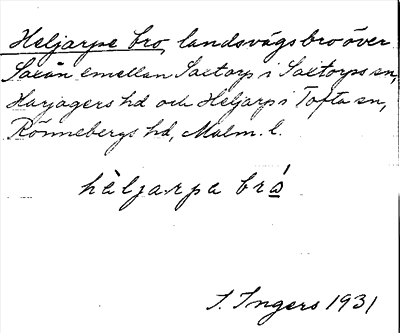 Heljarpe bro, landsvägsbro över
Saxån emellan Saxtorp i Saxtorps sn,
Harjagers hd och Heljarp i Tofta sn,
Rönnebergs hd, Malm. l.
hèljarpa brá̲
I. Ingers 1931